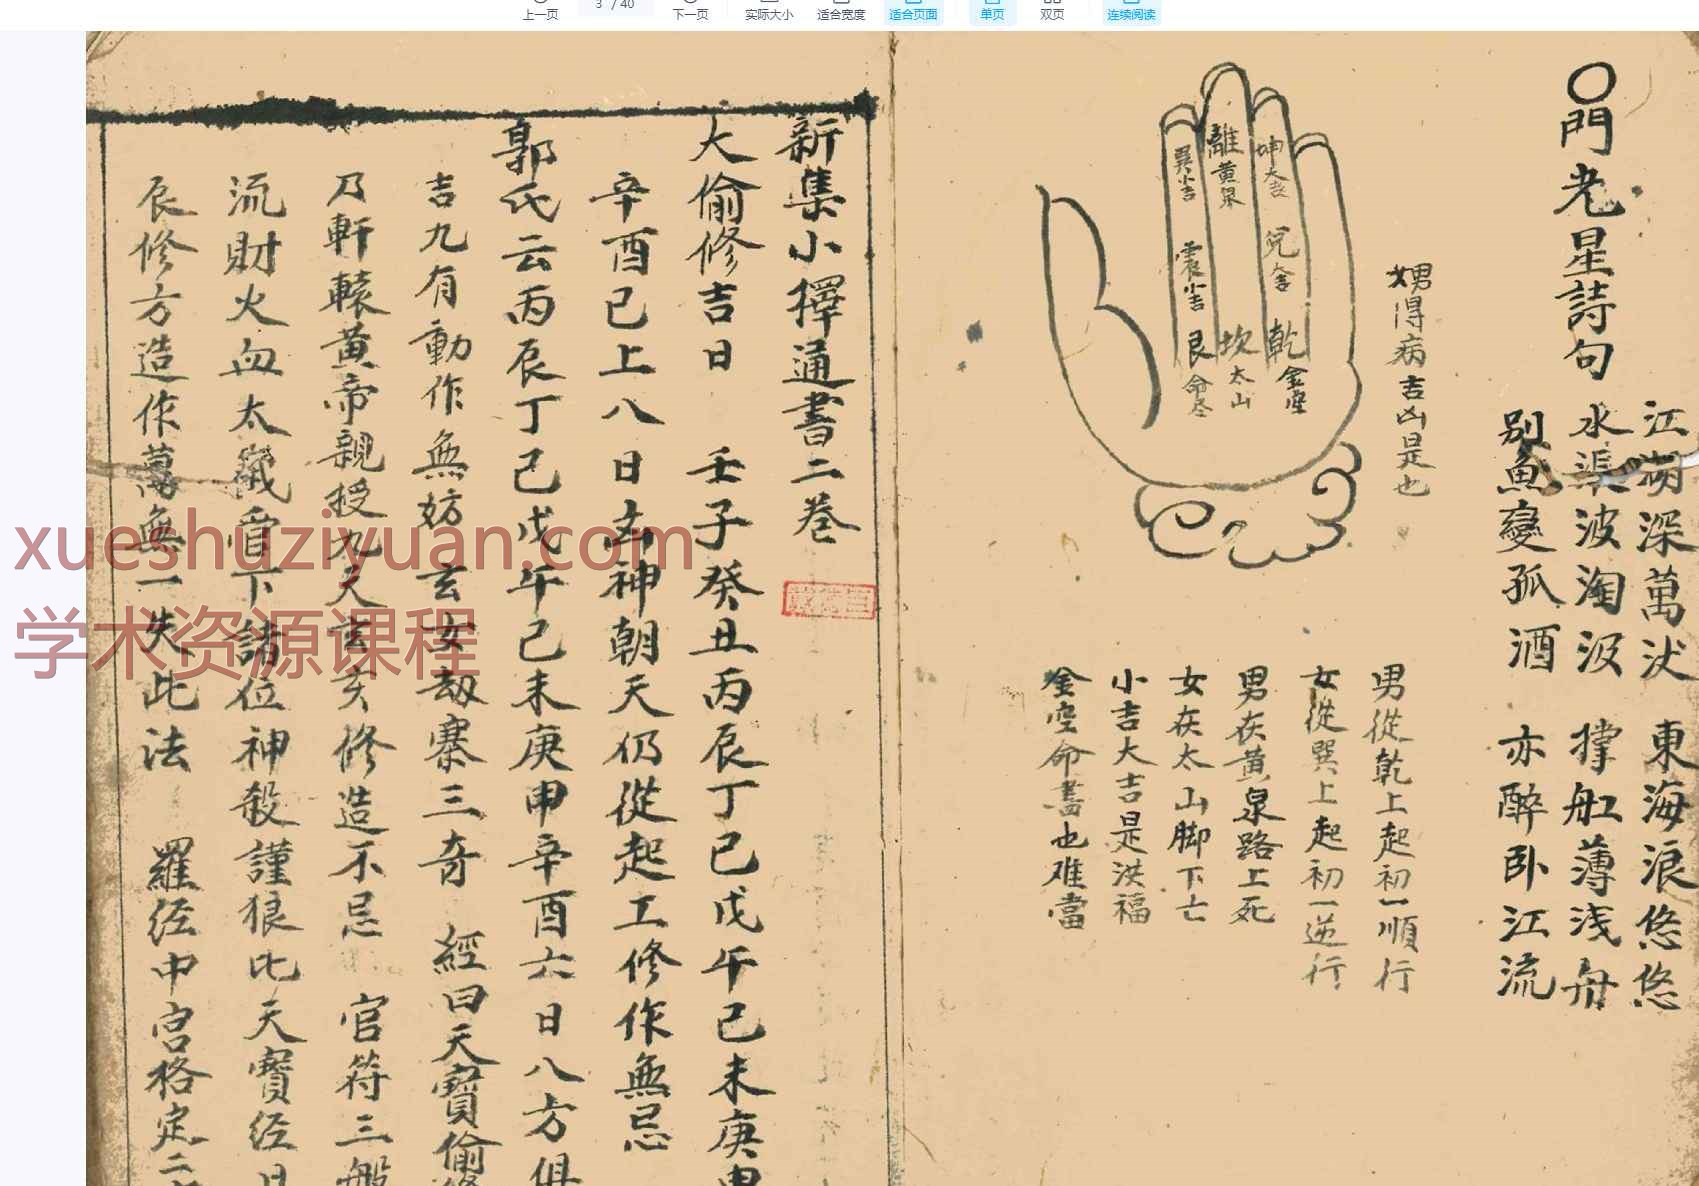 3 / 40
上一页
下一页
实际大小
适合宽度
适合页面
单页
双页
连续阅读
〇門老星詩句
江湖深萬丈 東海浪悠悠
水渠波淘汲 撑舡薄浅舟
別魚變孤酒 亦醉卧江流
男女得病吉凶是也
巽小吉
離黄泉
坤大吉
震小吉
兌金
艮命尽
坎太山
乾金空
男從乾上起初一順行
女從巽上起初一逆行
男在黃泉路上死
女在太山脚下亡
小吉大吉是洪福
金空命盡也难當
新集小擇通書二巻
大偷修吉日 壬子癸丑丙辰丁巳戊午己未庚申
辛酉已上八日凶神朝天仍從起工修作無忌
郭氏云丙辰丁己戊午己未庚申辛酉六日八方俱
吉九有動作無妨 玄女劫寨三奇 經曰天寶偷修
乃軒轅黃帝親授九天玄女修造不忌 官符三般
流財火血太歲官下諸位神殺謹狼比天寳经日
辰修方造作萬無一失此法 羅经中宫格定二
xueshuziyuan.com
学术资源课程